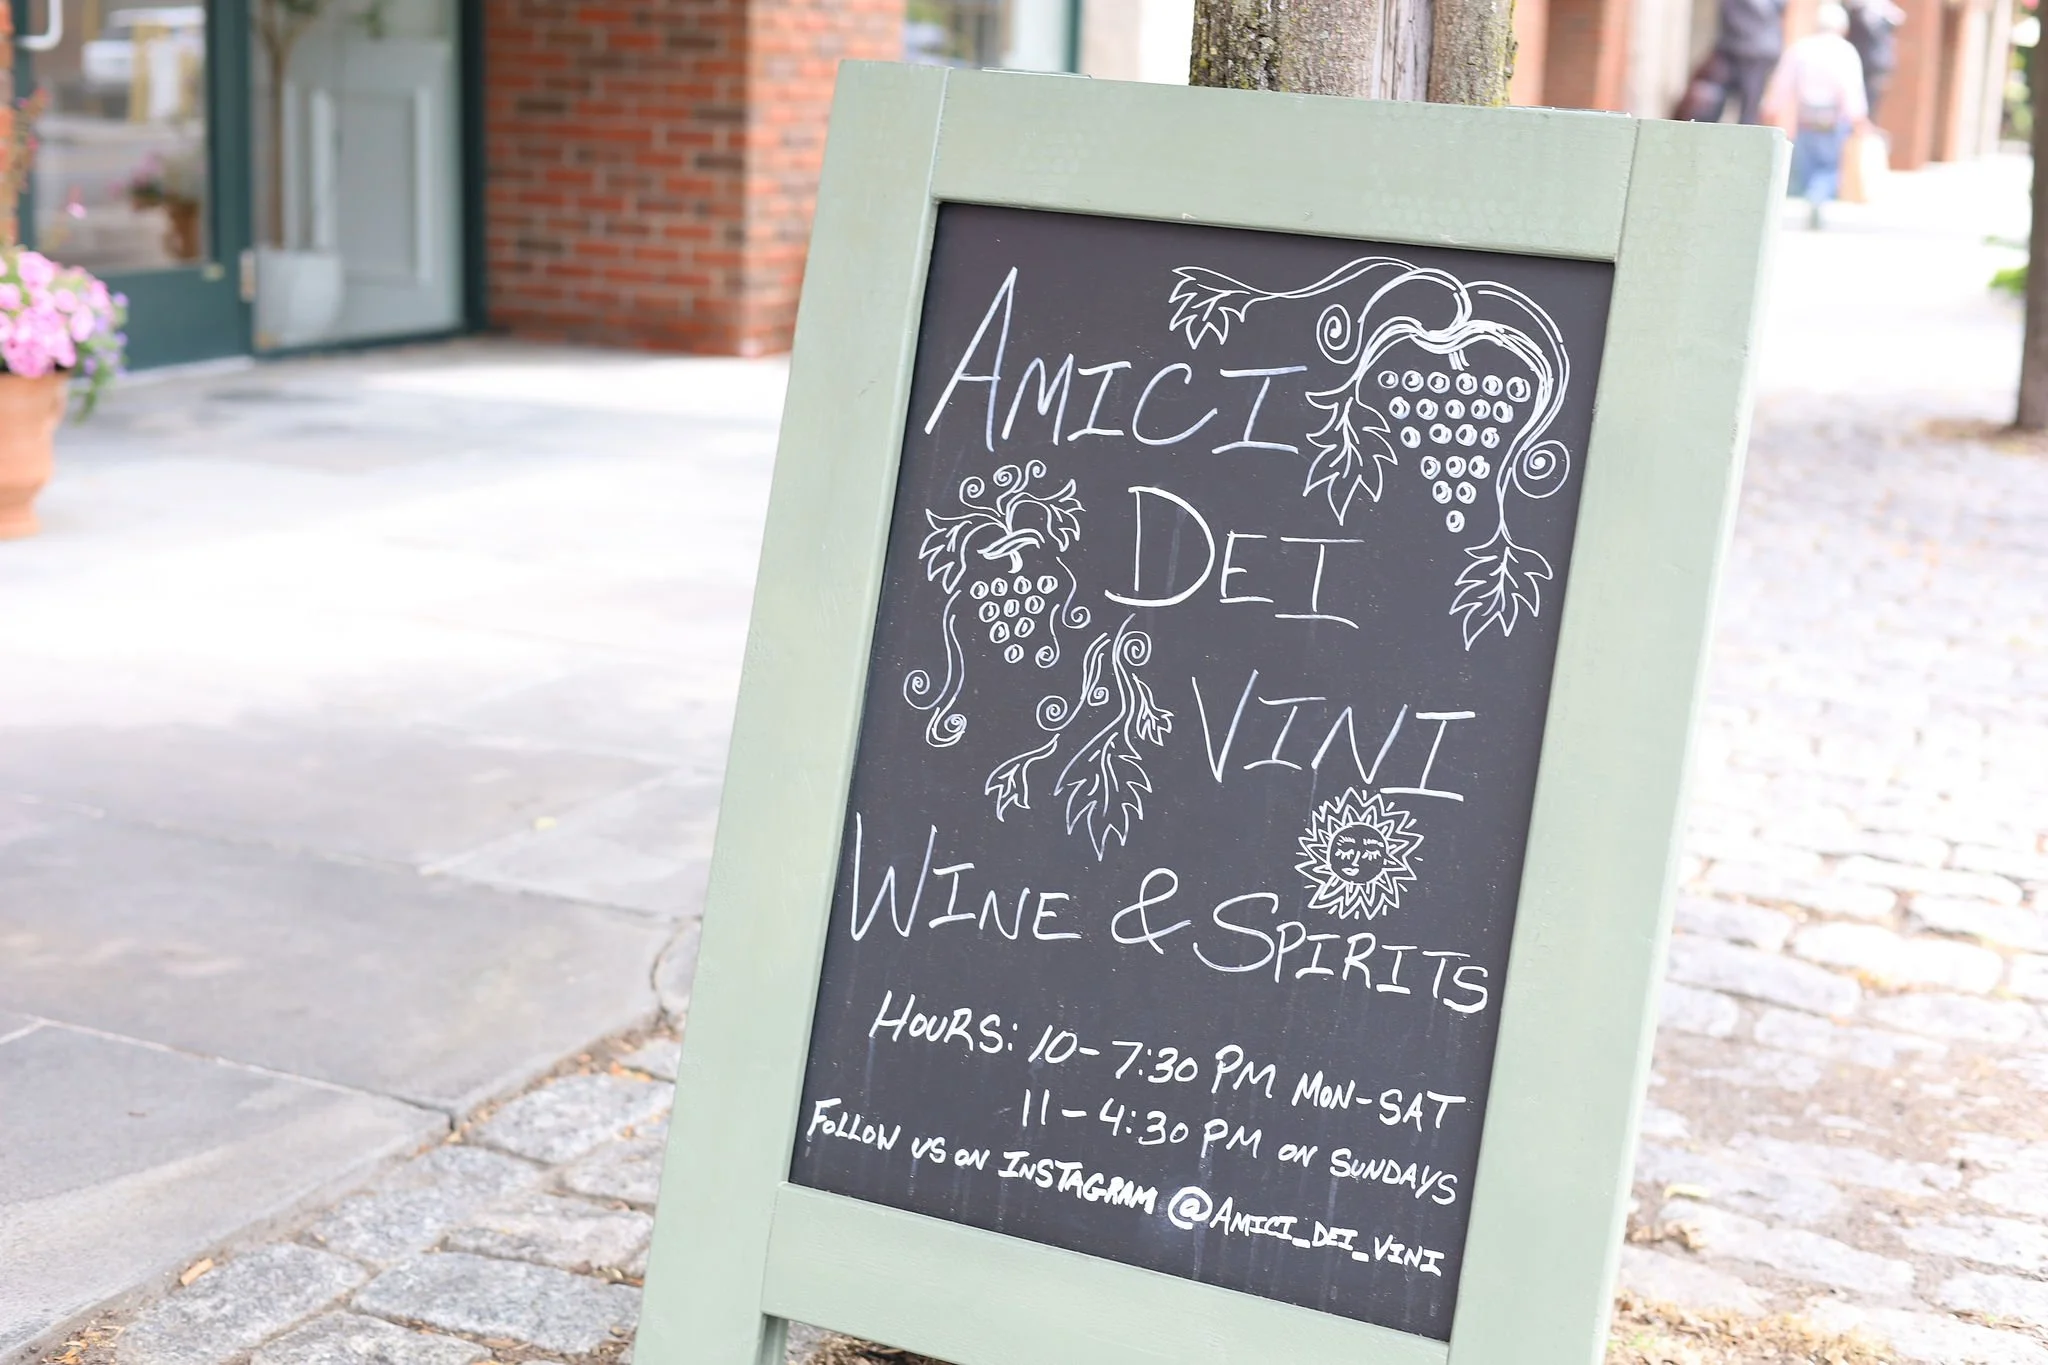 AMICI
DEI
VINI
WINE & SPIRITS
HOURS: 10-7:30 PM MON-SAT
11-4:30 PM ON SUNDAYS
FOLLOW US ON INSTAGRAM @AMICI_DEI_VINI